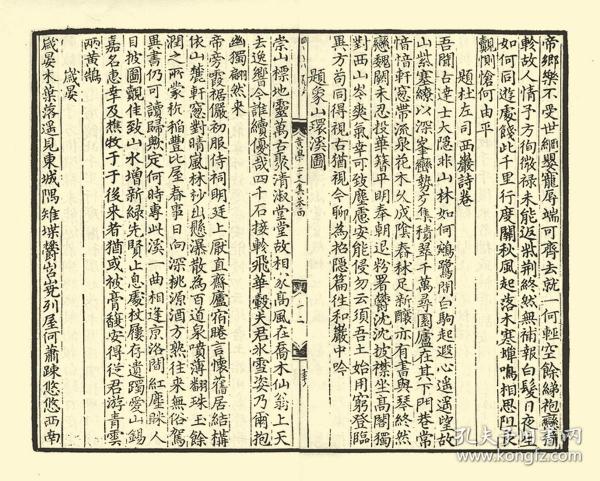 帝鄉樂不受世網嬰寵辱端可齊去就一何輕空餘綈袍戀
軫故人情予方徇微祿未能返柴荆終然無補報白髮日夜生
如何同遊處餞此千里行度關秋風起落木寒蟬鳴相思阻良
覿惻愴何由平
題杜左司西巖詩卷
吾聞古達士大隱非山林如何鵷鷺間白駒起遐心遥遥望故
山紫塞繚以深峯巒勢歹集積翠千萬尋園廬在其下門巷常
愔愔軒窓帶流泉花木久成陰春秫足新釀亦有書與琴終然
戀魏闕未忍投華簪平明奉朝退粉署鬱沈沈披襟坐高閣獨
對西山岑爽氣幸可致塵慮安能侵勿云須吾土始用窮登臨
異方苟同得視古猶視今聊為招隱篇往和巖中吟
題象山環溪圖
崇山標地靈萬古聚清淑堂堂故相家高風在喬木仙翁上天
去逸響今誰續優哉四千石接軫飛華轂夫君氷雪姿乃爾抱
幽獨翩然來
帝旁霞裾儼初服侍祠明廷上厭直齋廬宿睠言懷舊居結構
依山麓軒窓對晴嵐林杪出懸瀑散為百道泉噴薄翻珠玉餘
潤之所蒙秔稻豐比屋春事日向深桃源酒方熟往來無俗駕
異書仍可讀歸興定何時專此溪一曲相逢京洛間紅塵眯人
目披圖觀佳致山水增新綠先賢止息處杖屨存遺躅愛山錫
嘉名惠幸及樵牧于于後來者猶或被膏馥安得從君游青雲
兩黄鵠
歲晏
歲晏木葉落遥見東城隅雉堞欝宫嵬列屋何蕭疎悠悠西南